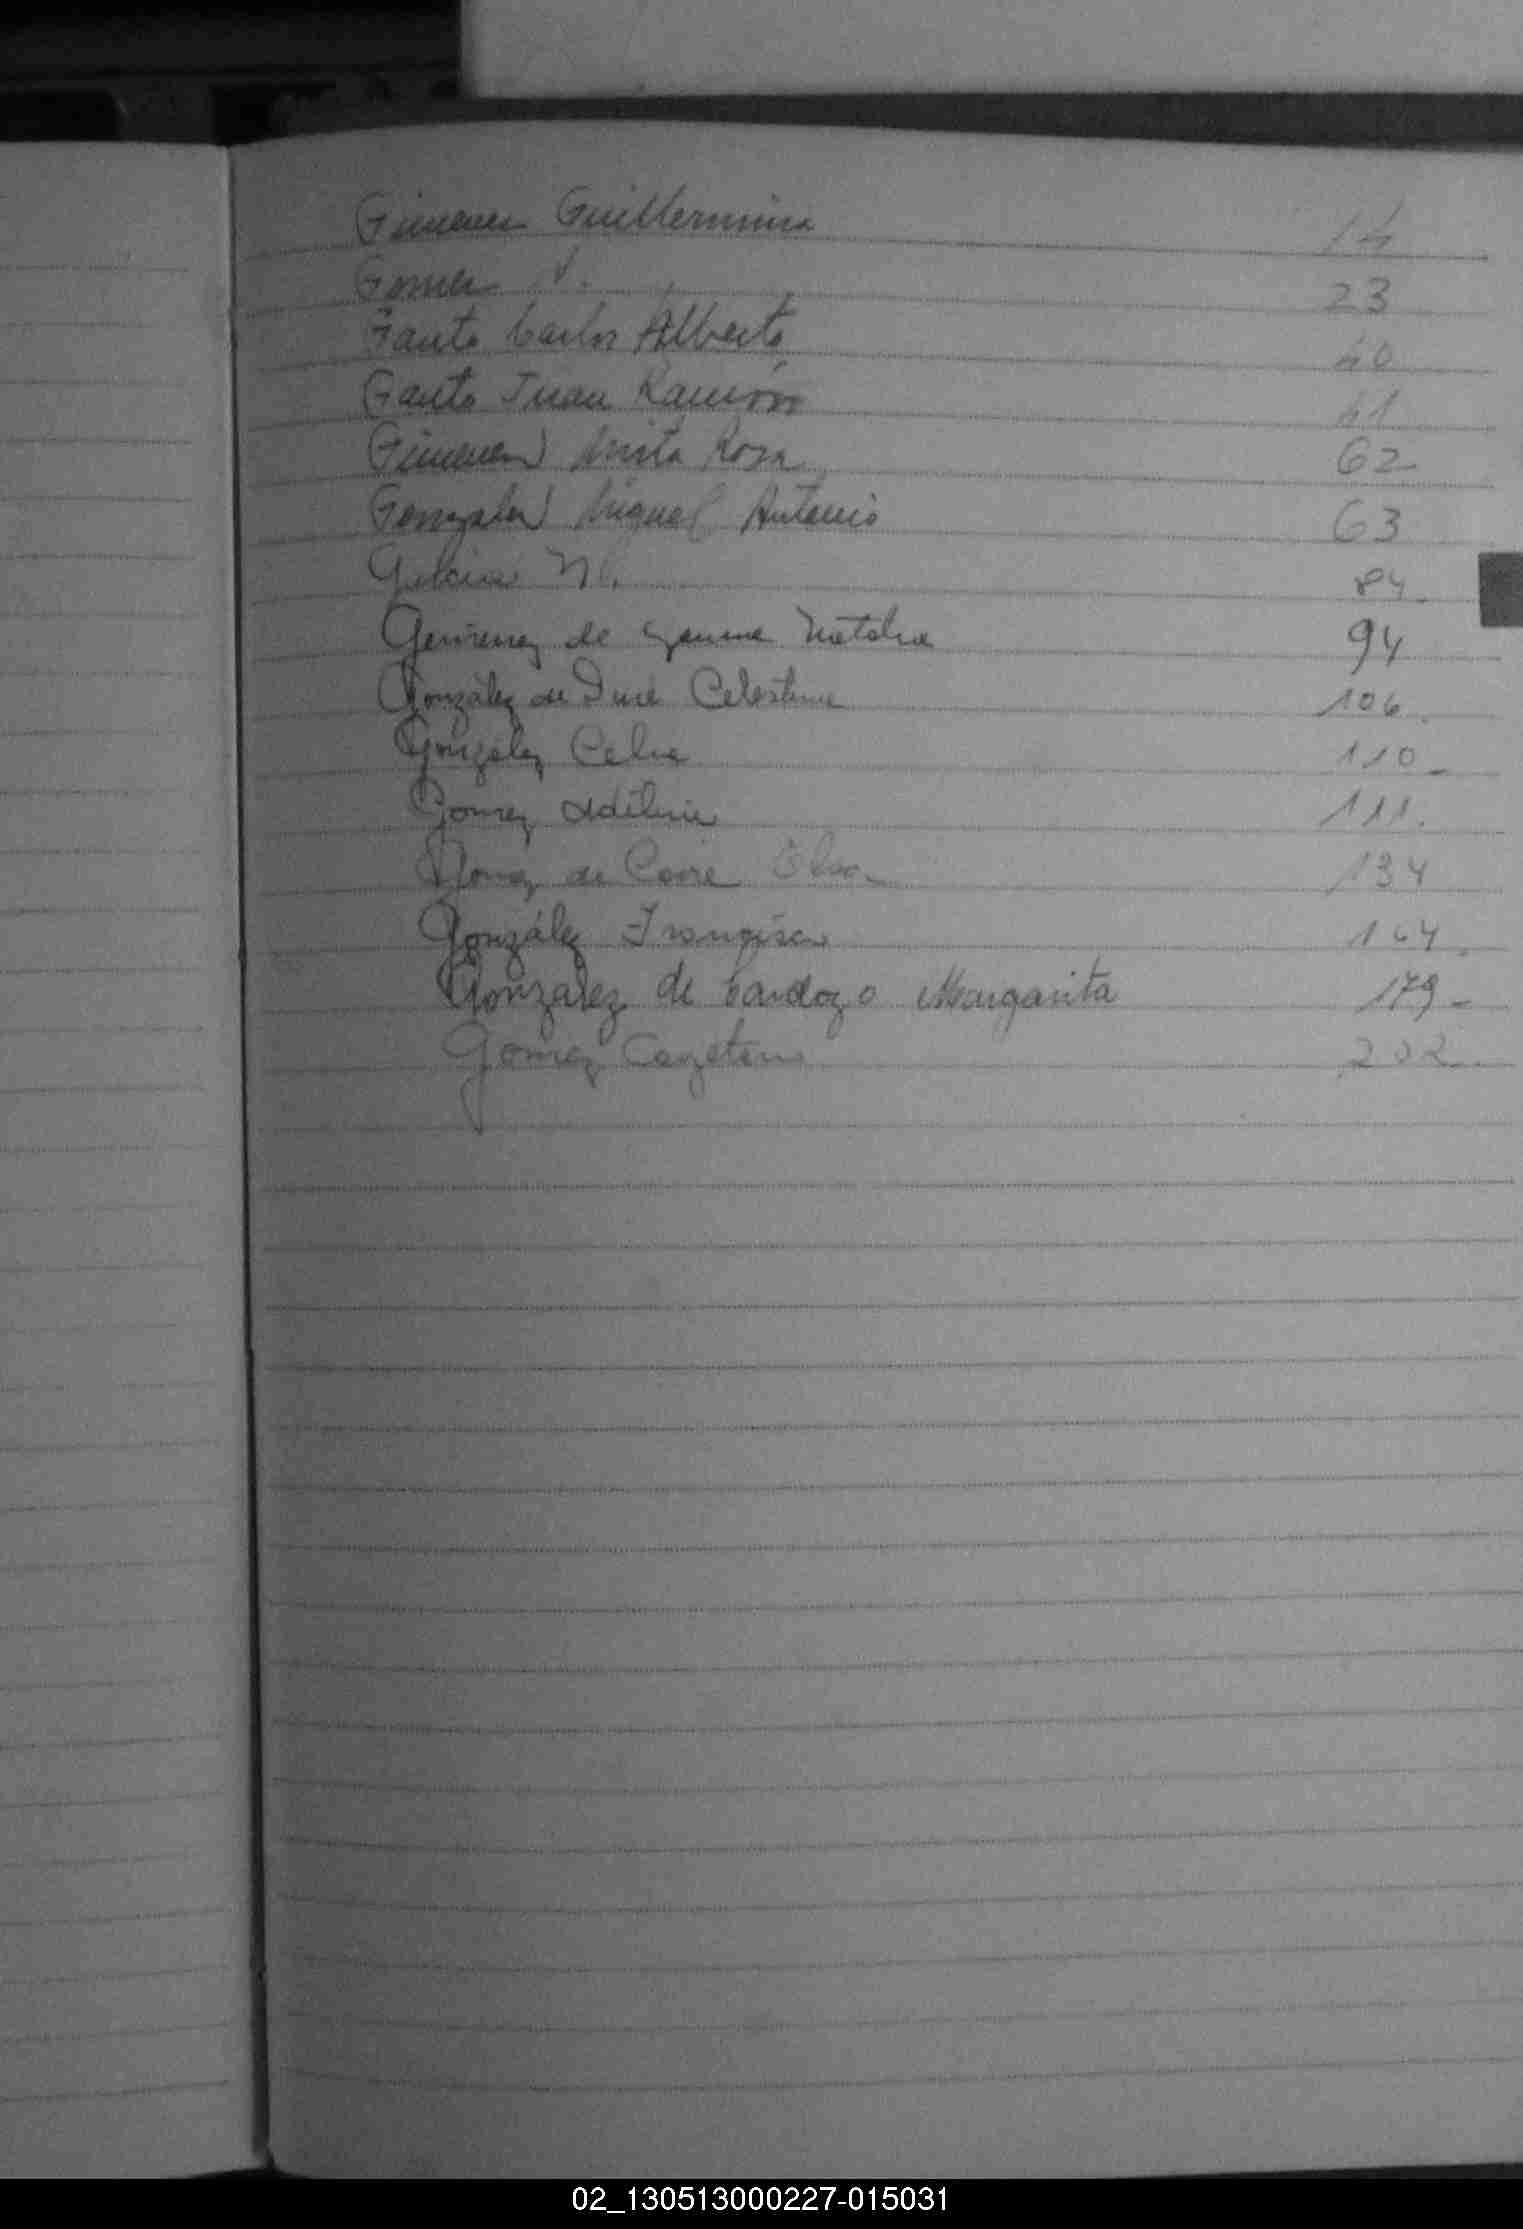 Gimenez Guillermina 14
Gomez N. 23
Gauto Carlos Alberto 40
Gauto Juan Ramón 41
Gimenez Rosa 62
Gonzalez Miguel Antonio 63
N. 84
Gimenez de Natalia 94
González de Celestina 106
González Celia 110
Gomez 111.
Gomez de Elsa 134
González Francisca 164
Gonzalez de Cardozo Margarita 179
Gomez Cayetano 202
02_130513000227-015031